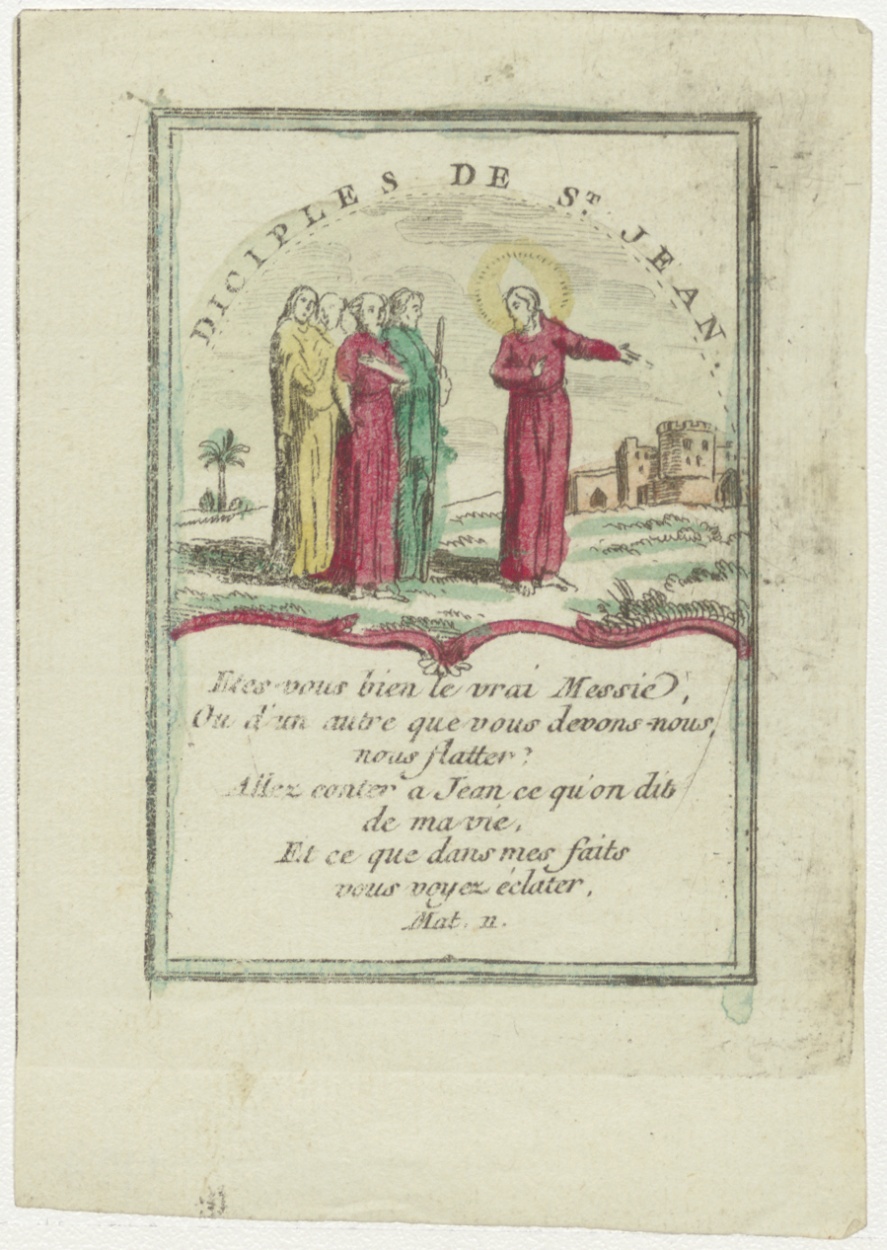 DICIPLES DE ST JEAN
Etes-vous bien le vrai Messie,
Ou d'un autre que vous devons-nous,
nous flatter?
Allez conter a Jean ce qu'on dit
de ma vie,
Et ce que dans mes faits
vous voyez éclater,
Mat. 11.